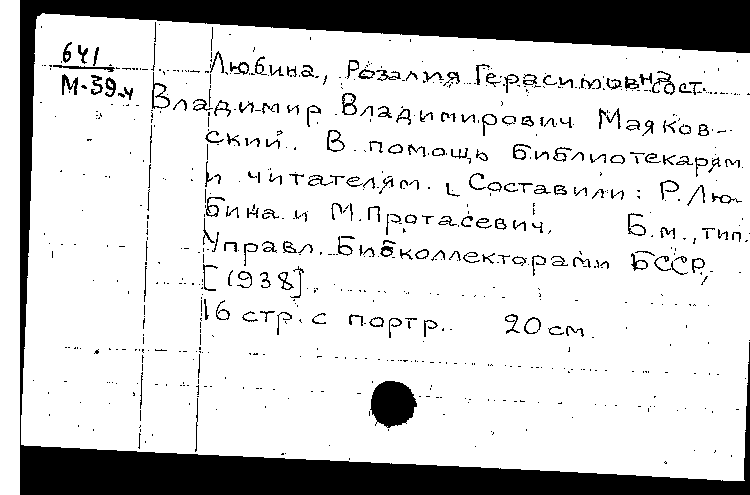 641
М-39-ч
Любина, Розалия Герасимовна сост.
Владимир Владимирович Маяков-
ский. В помощь библиотекарям
и читателям. [Составили: Р. Лю-
бина и М. Протасевич. Б.м., тип.
Управл. Бибколлекторами БССР,
[1938].
16 стр. с портр. 20 см.